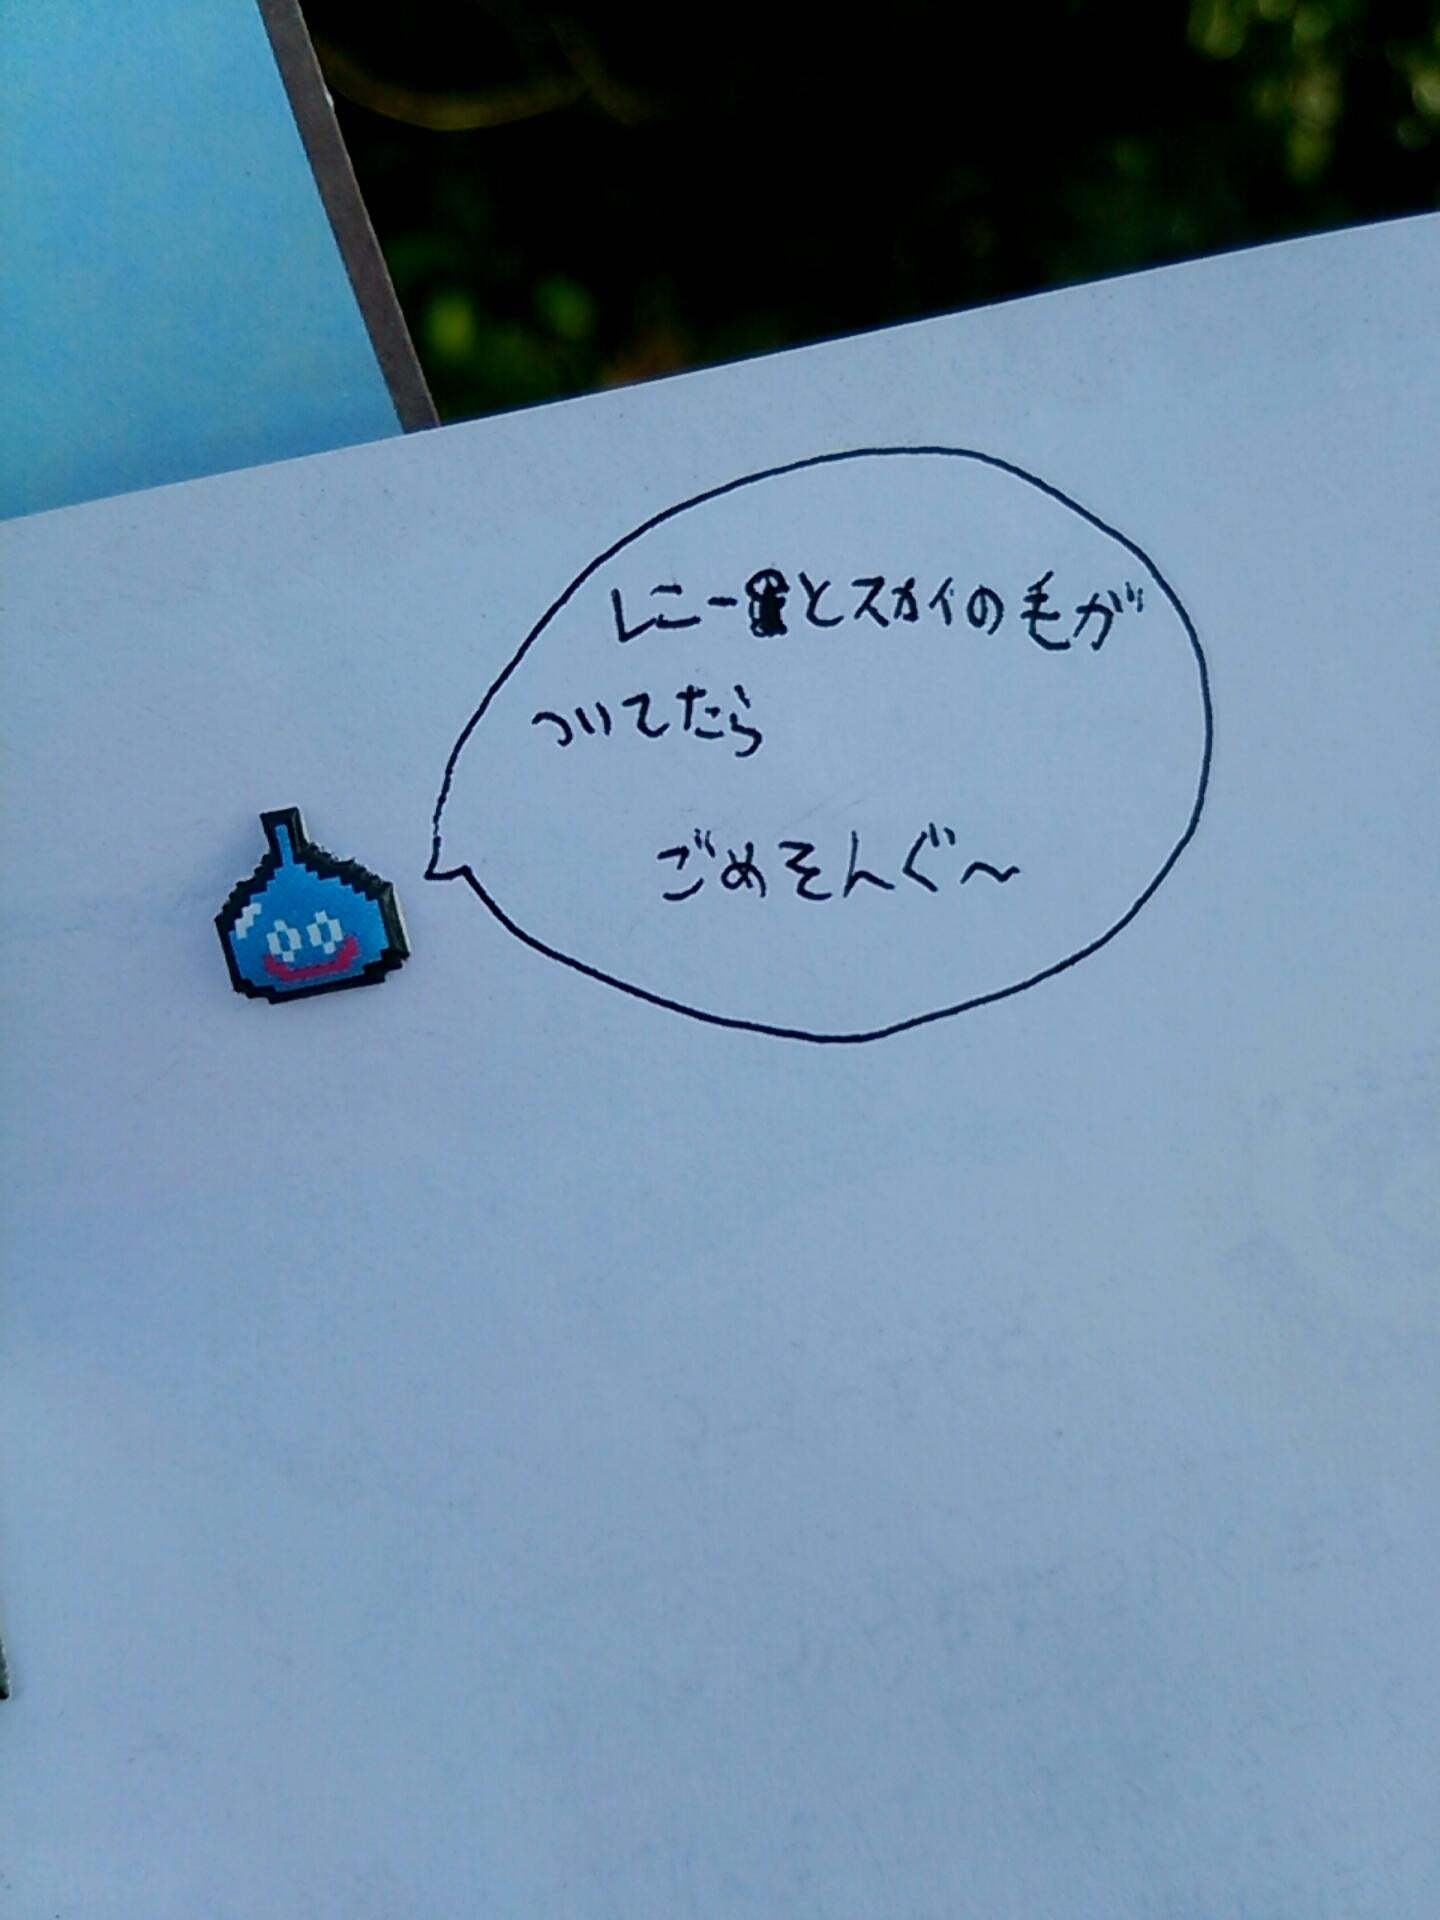 レニーとスカイの毛が
ついてたら
ごめそんぐ〜